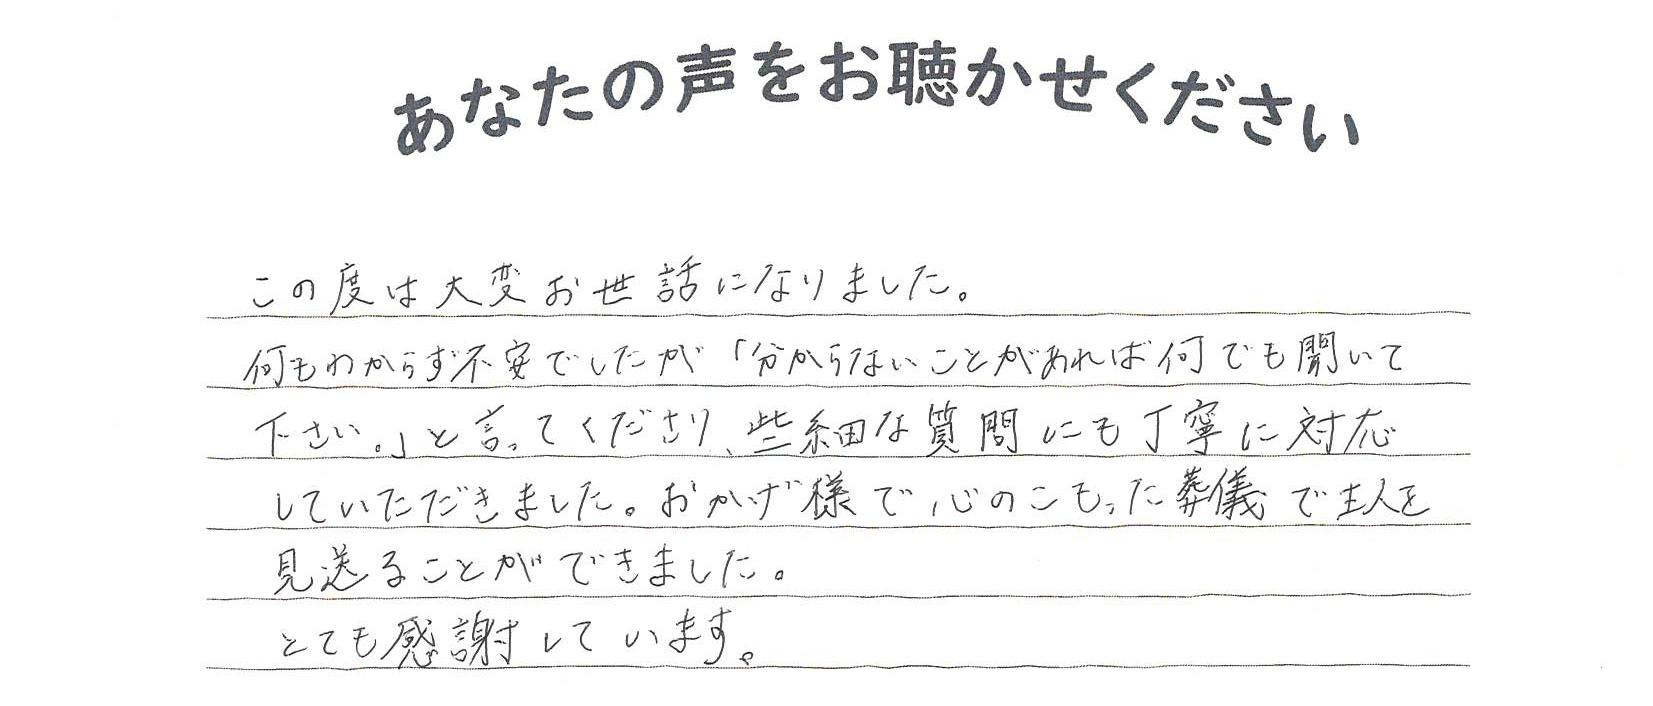 あなたの声をお聴かせください
この度は大変お世話になりました。
何もわからず不安でしたが「分からないことがあれば何でも聞いて
下さい。」と言ってくださり、些細な質問にも丁寧に対応
していただきました。おかげ様で心のこもった葬儀で主人を
見送ることができました。
とても感謝しています。